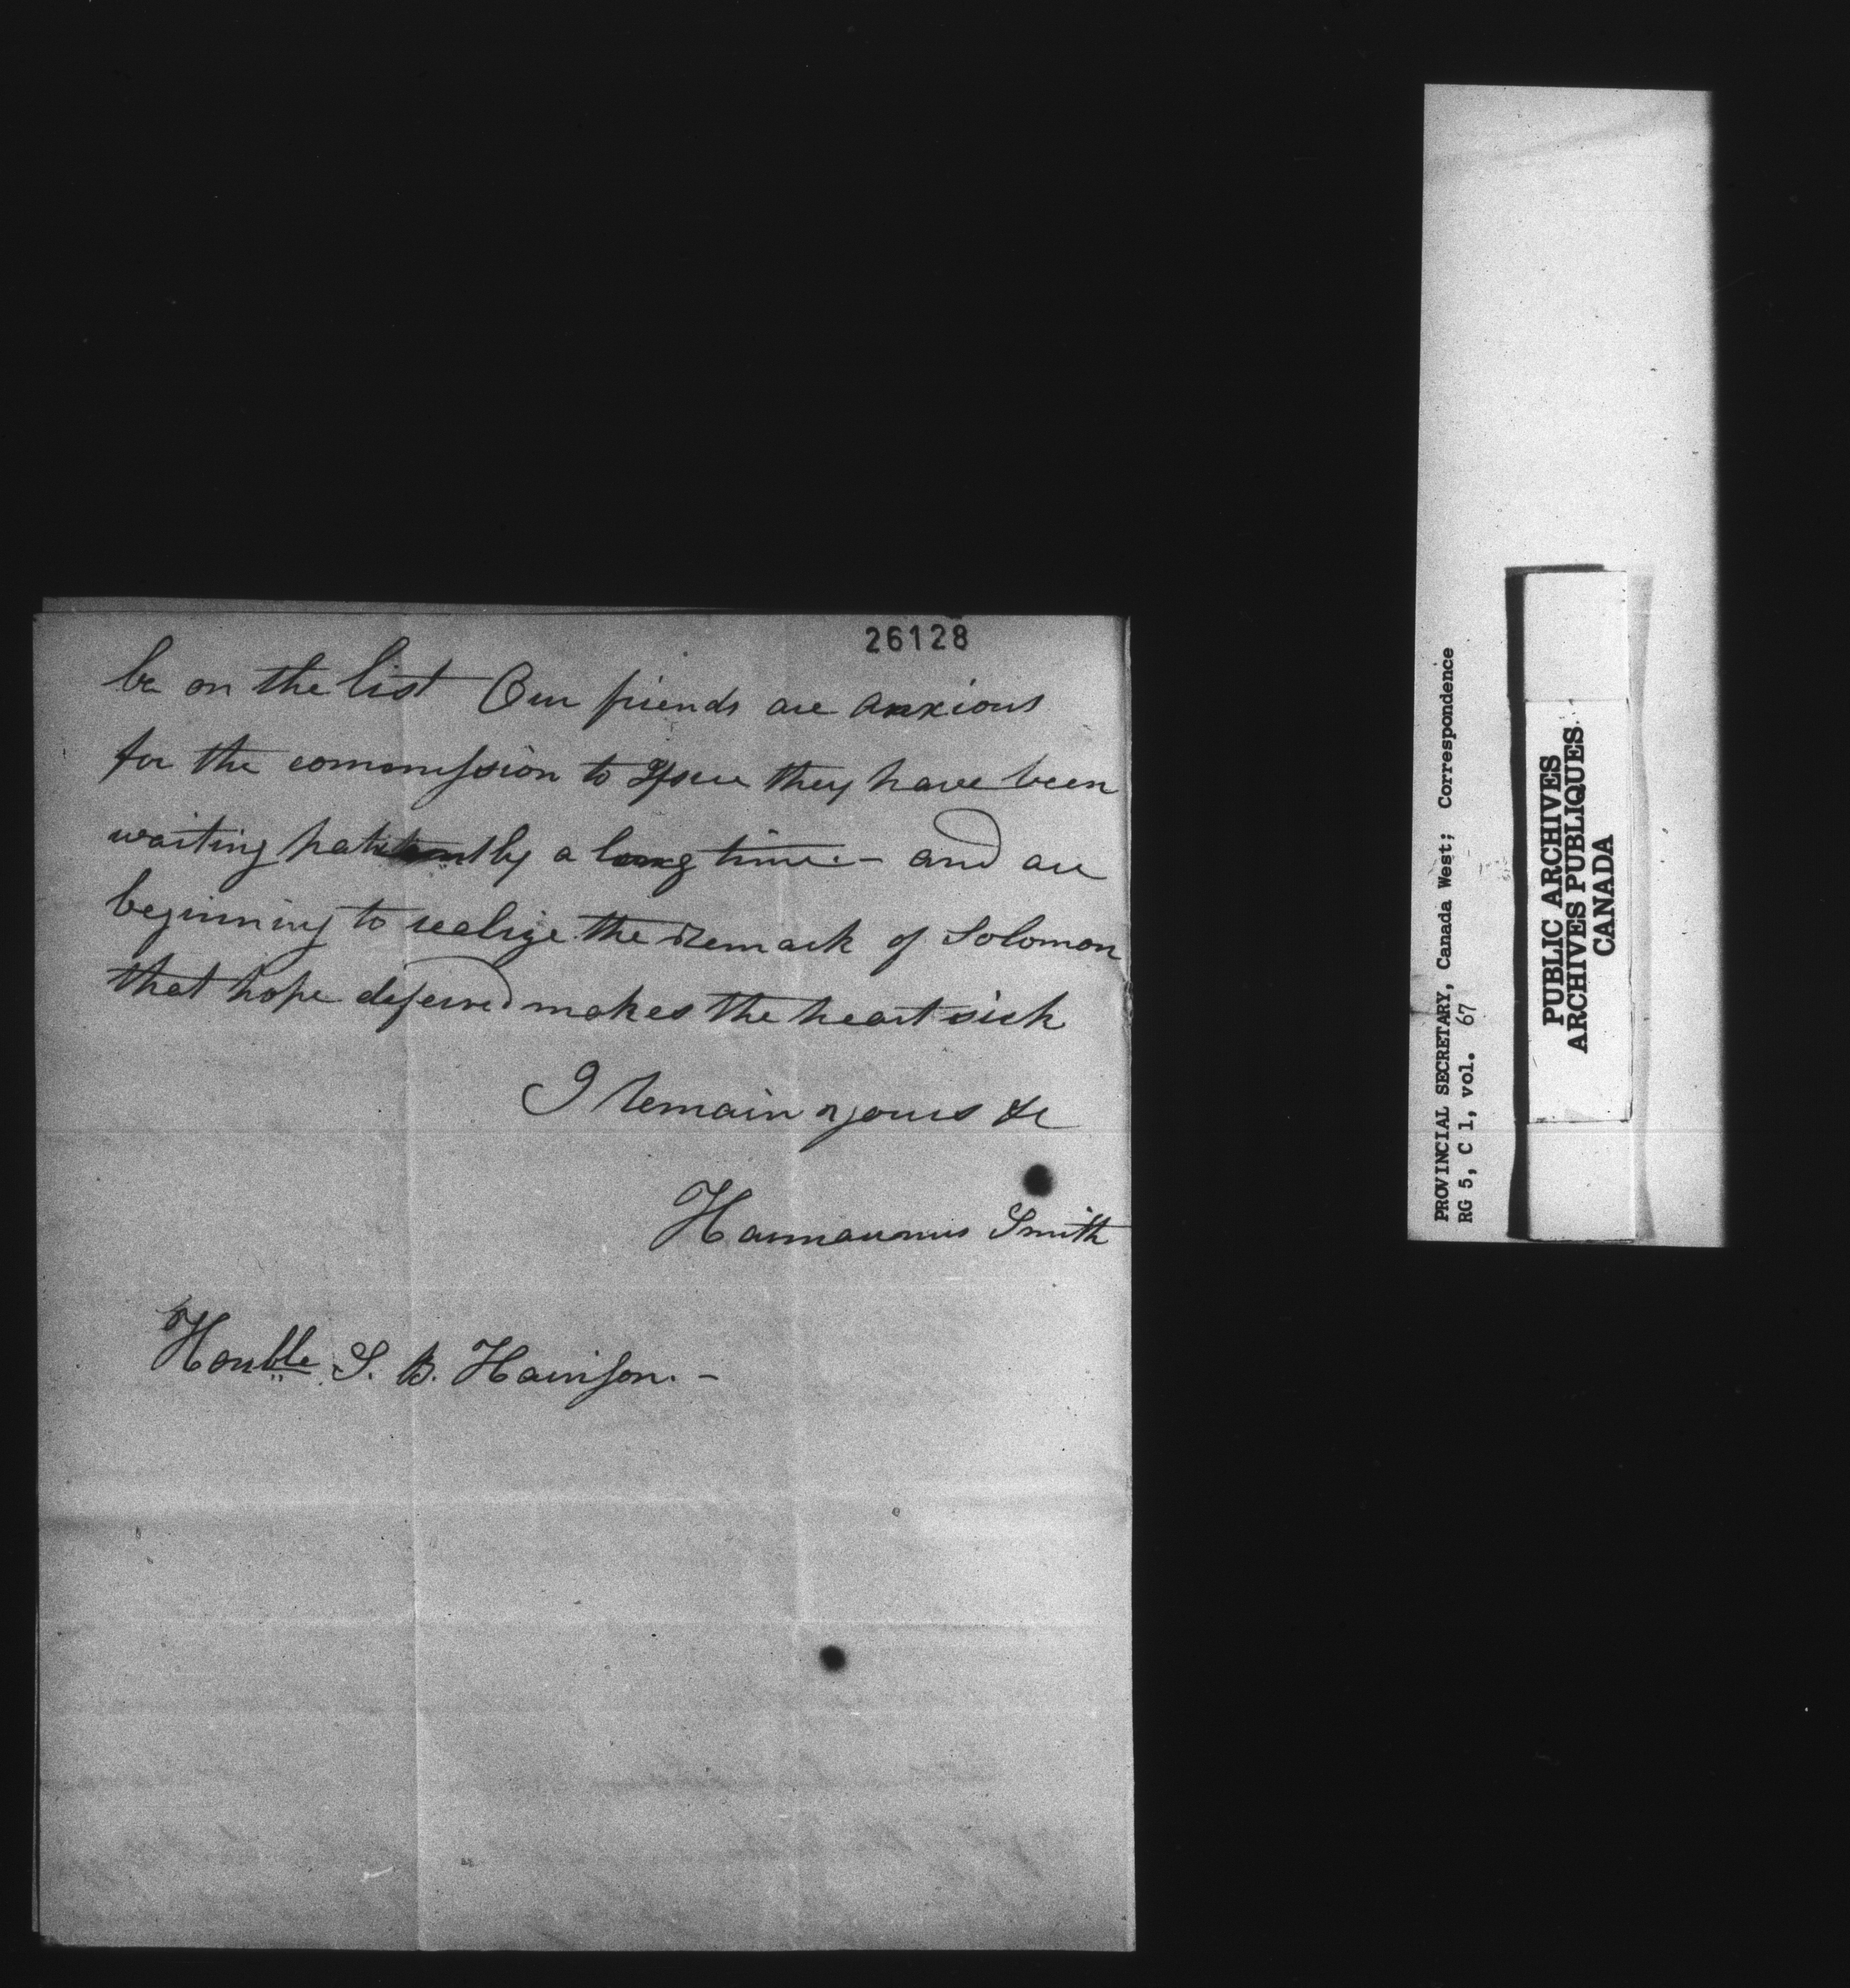 26128
be on the list Our friends are anxious
for the commission to Issue they have been
waiting patiently a long time. – and are
beginning to realize the Remark of Solomon
that hope deferred makes the heart sick
I remain yours &c
Harmaunus Smith
Honble S. B. Harrison. –
PROVINCIAL SECRETARY, Canada West; Correspondence
RG 5, C 1, vol. 67
PUBLIC ARCHIVES
ARCHIVES PUBLIQUES
CANADA